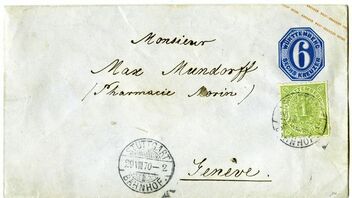 WÜRTTEMBERG
6
SECHS KREUZER
Monsieur
Max Mundorff
(Pharmacie Morin)
1
STUTTGART
29 VIII 70 - 2
BAHNHOF
BAHNHOF
Genève.